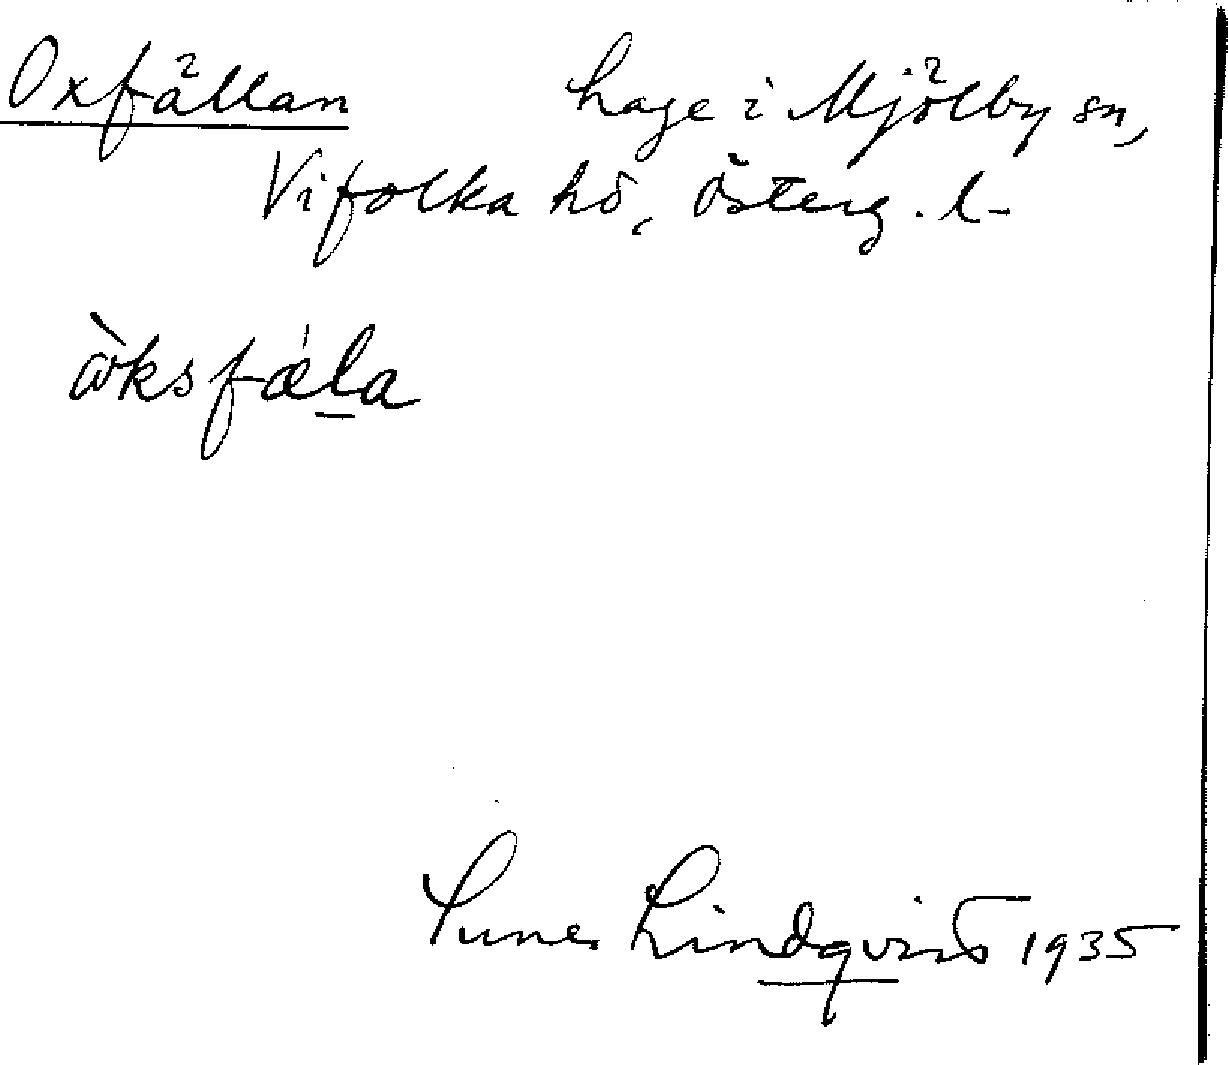 Oxfällan hage i Mjölby sn,
Vifolka hd, Österg. l-
òksfǽla
Sune Lindqvist 1935